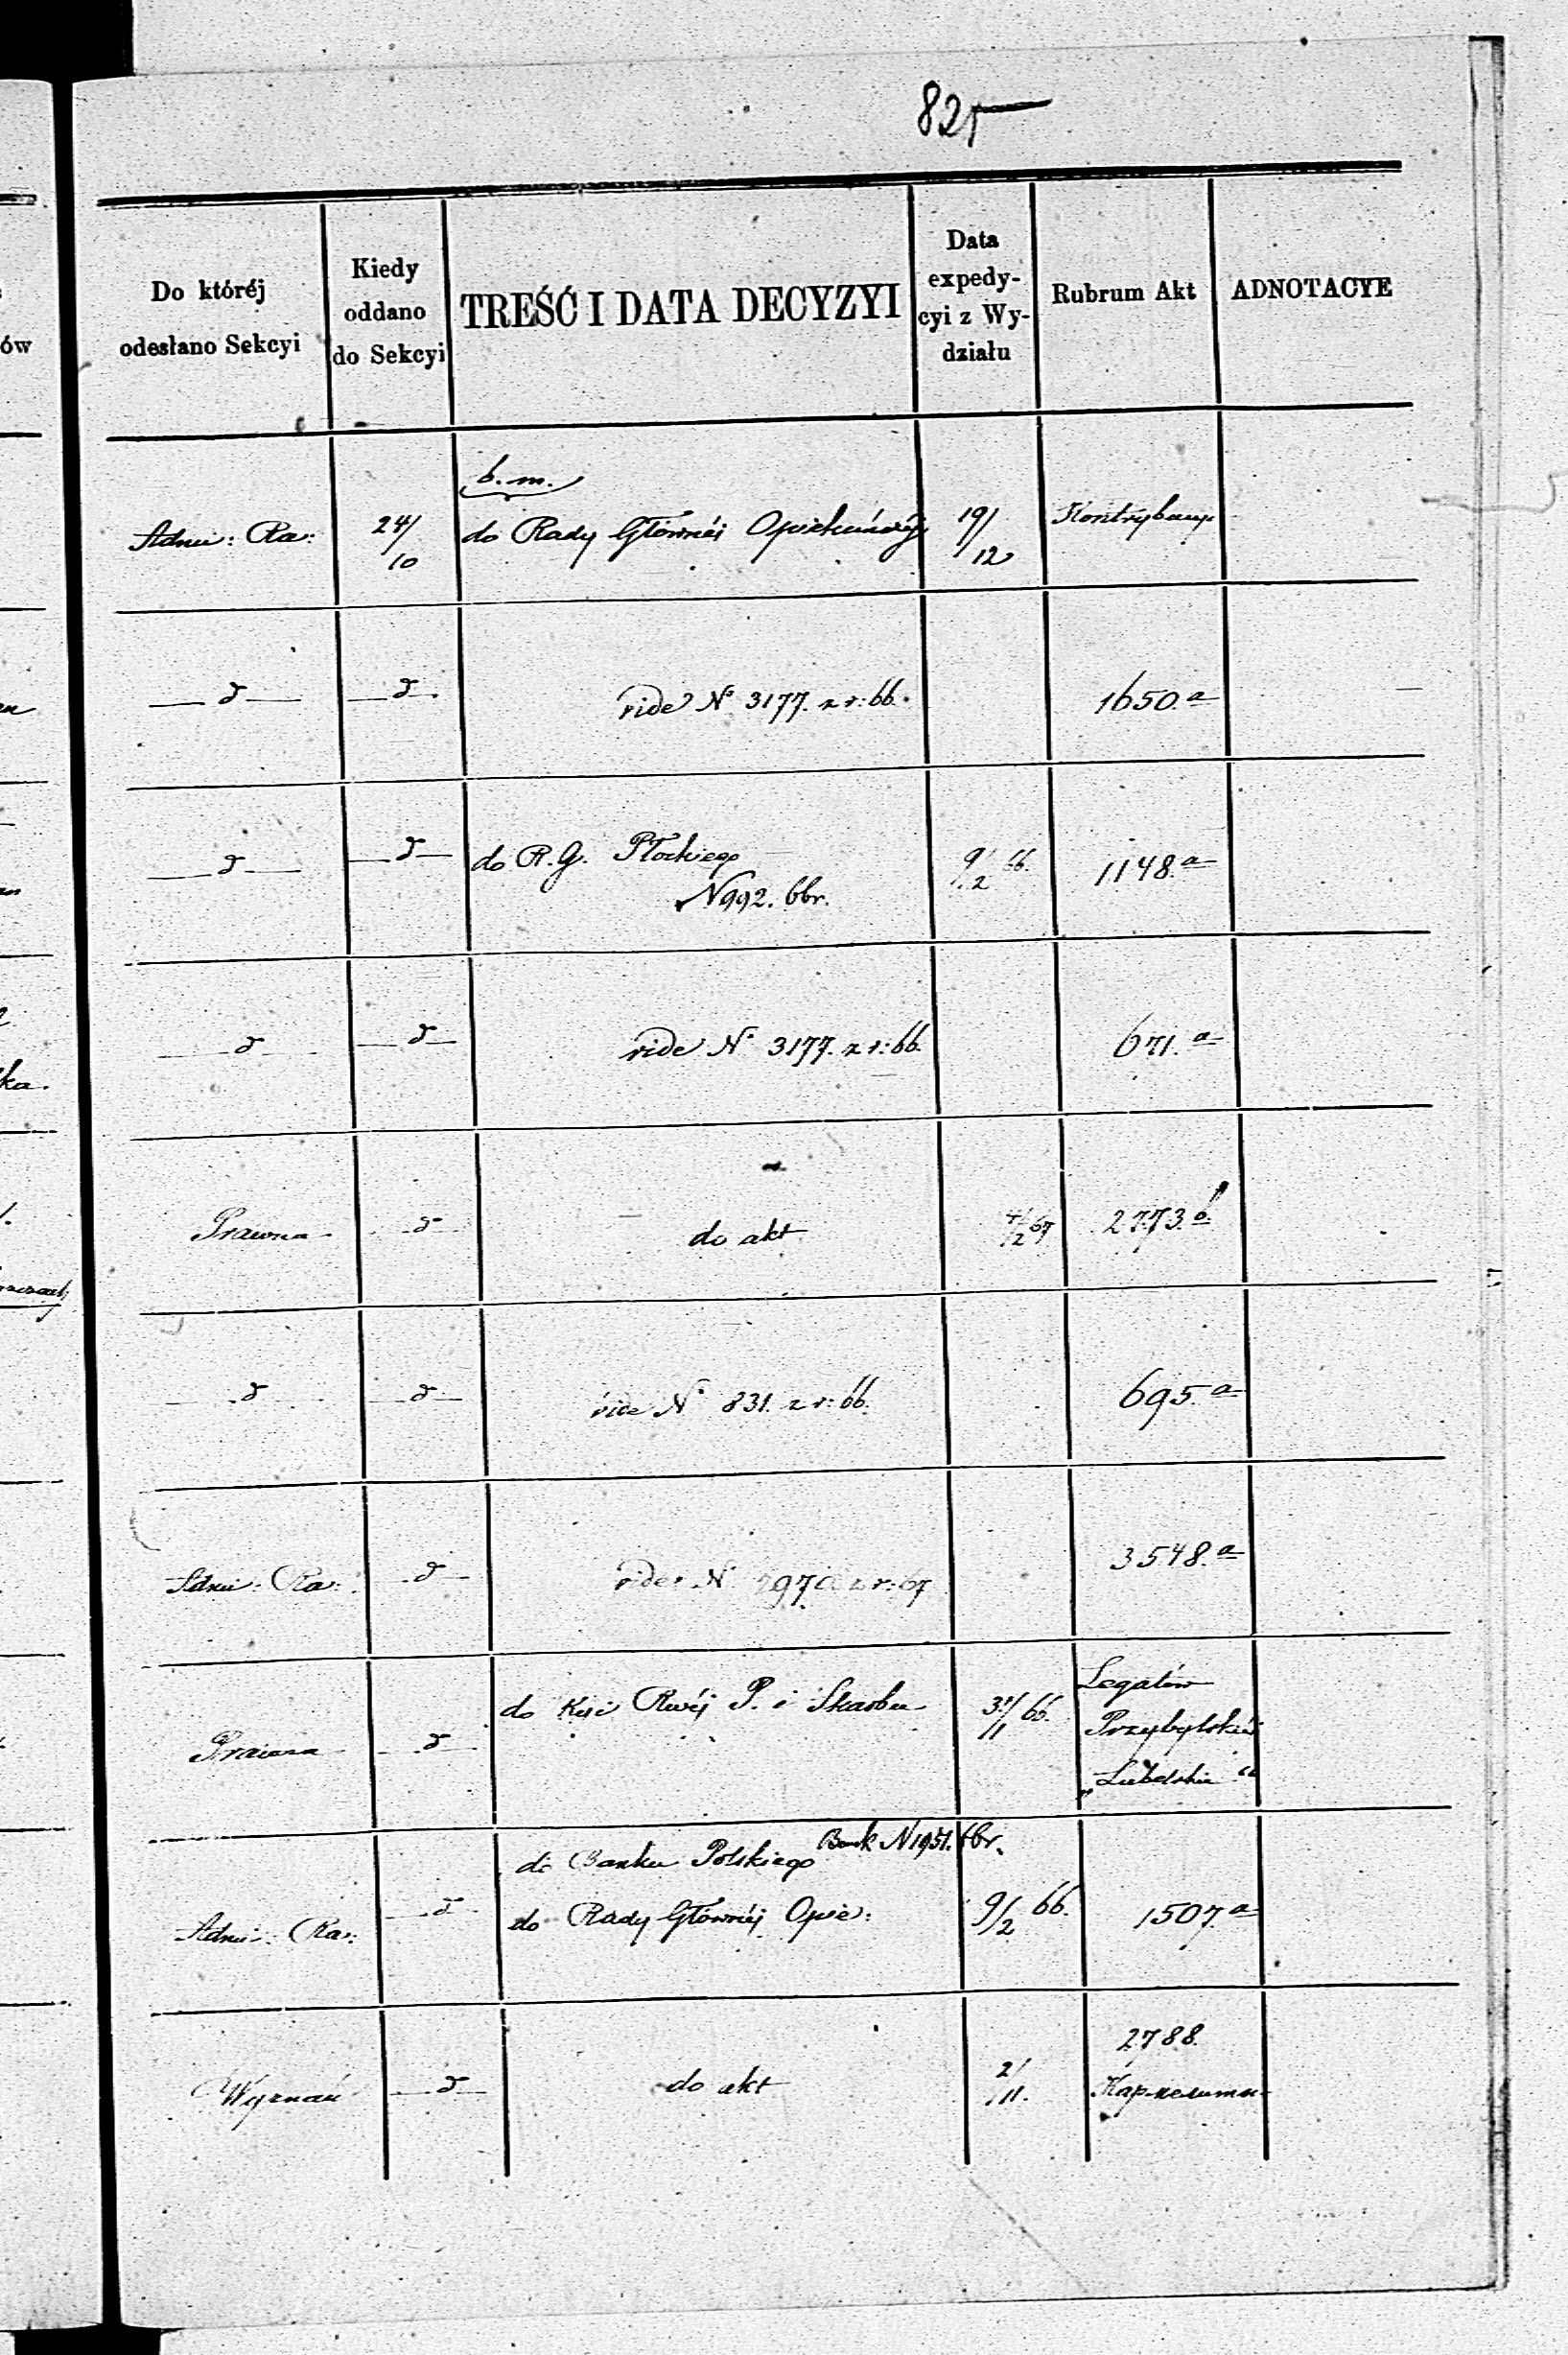 825
Do któréj
odesłano Sekcyi
Kiedy
oddano
do Sekcyi
TREŚĆ I DATA DECYZYI
Data
expedy-
cyi z Wy-
działu
Rubrum Akt
ADNOTACYE
b. m.
Adm: Ra: 24/10 do Rady Głównéj Opiekuńczéj 19/12
d d vide No 3177. z r: 66. 1650.a
d d do R. G. Płockiego 9/2 66. 1148.a
N 992. 66r.
d d vide No 3177. z r: 66. 671.a
Prawna d do akt 4/2 67 2773.b
d d vide No 831. z r: 66. 695.a
Adm: Ra: d vide N 2970 z r: 67 3548.a
Prawna d do Kyi Rwéj P. i Skarbu 31/11 66. Legatów
Przybylskie
„Lubelskie“
do Banku Polskiego Bank N 1951. 66r.
Adm: Ra: d do Rady Głównéj Opie: 9/2 66. 1507.a
Wyznań d do akt 2/11. 2788.